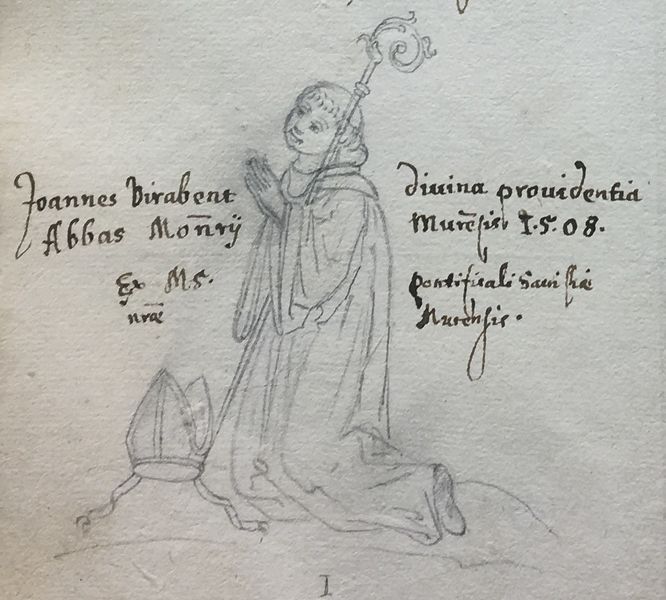 Joannes Birabent divina providentia
Abbas Mon̅rij Mure̅sis 1.5.08.
Ex MS. pontificali
nr̅æ Murensis.
I